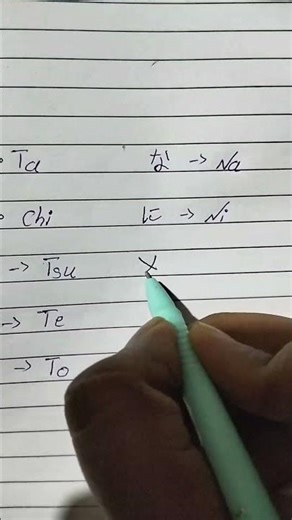 Ta な → Na
Chi に → Ni
→ Tsu
→ Te
→ To